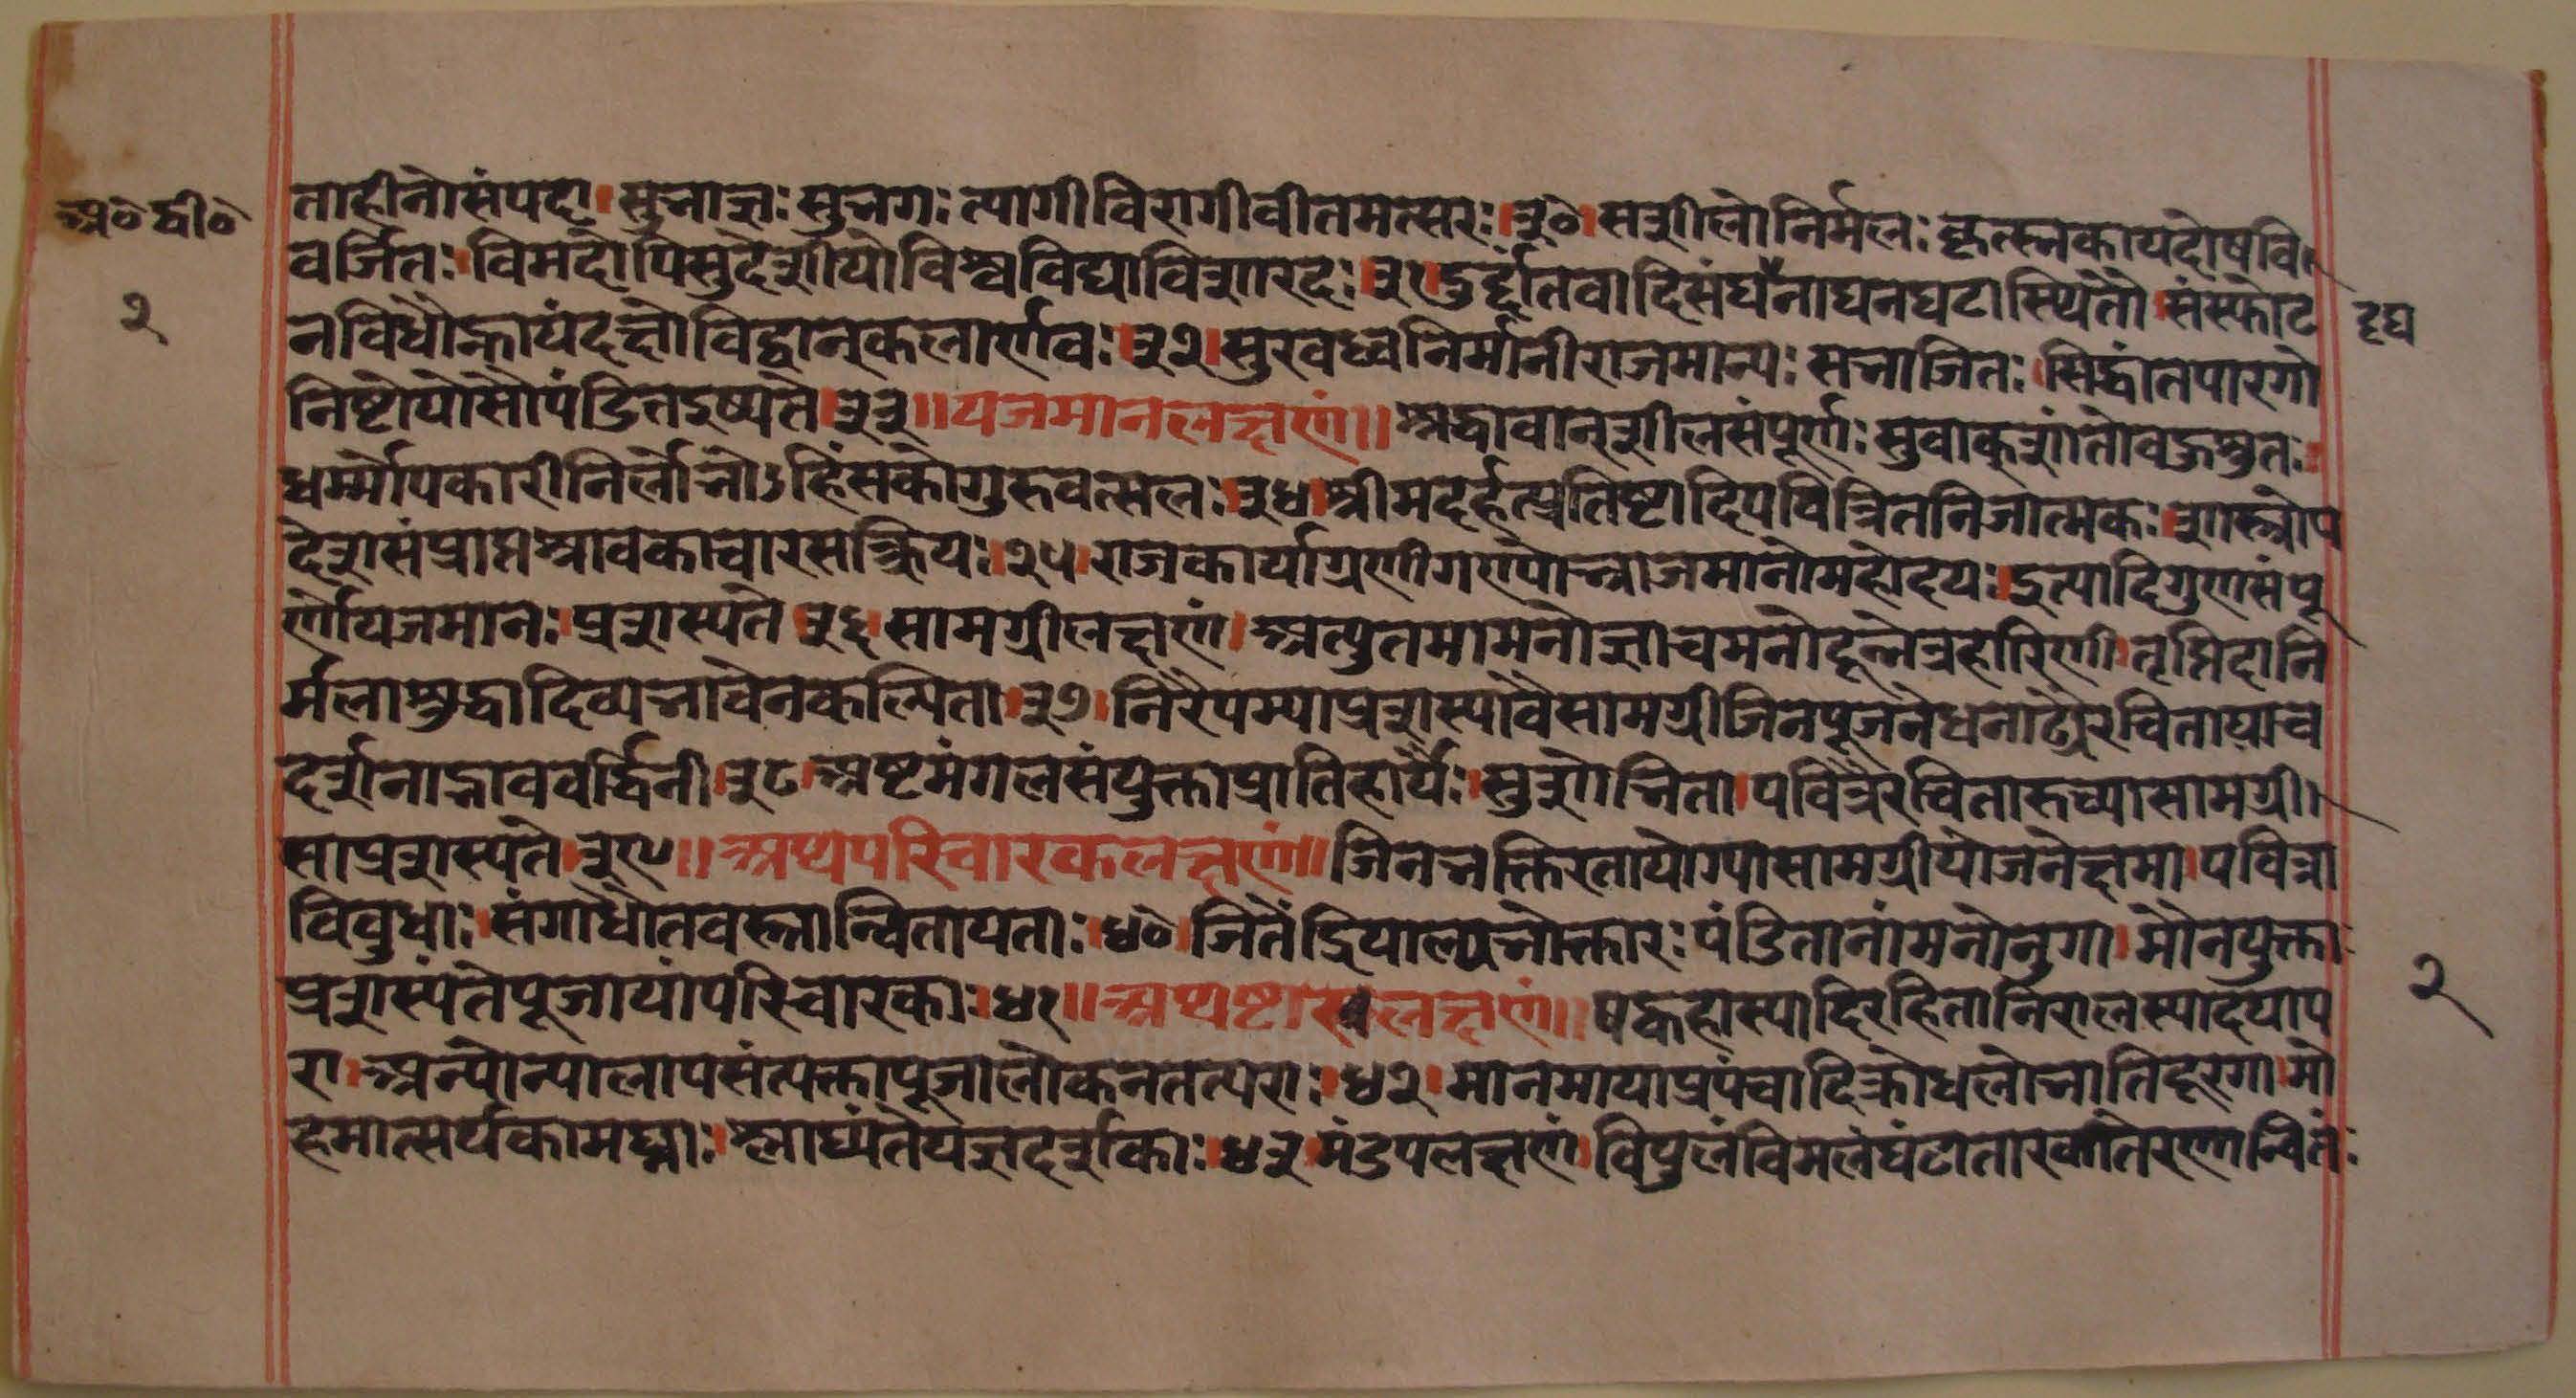 ताहीनोसंपदा।सुभाज्ञः सुभगः त्यागीविरागीवीतमत्सरः।३०।सशीलोनिर्मलः कृत्स्नकायदोषवि
अ०द्वी०
वर्जितः।विमदोपिसुदेशीयोविश्वविद्याविशारदः।३१।दुर्द्दांतवादिसंघनाघनघटास्थितौ।संस्फोट
२
नविधौह्ययंदक्षोविद्वान्कलार्णवः।३२।सुखध्वनिर्मानीराजमान्यः सभाजितः।सिद्धांतपारगो
निष्टोयोसौपंडितइष्यते।३३॥यजमानलक्षणं॥श्रद्धावान्शीलसंपूर्णः सुवाक्शांतोबहुश्रुतः।
धर्म्मोपकारीनिर्लोभोऽहिंसकोगुरुवत्सलः।३४।श्रीमदर्हत्प्रतिष्टादिपवित्रितनिजात्मकः।शास्त्रोप
देशसंप्राप्तश्रावकाचारसत्क्रियः।३५।राजकार्याग्रणीगण्योभ्राजमानोमहोदयः।इत्यादिगुणसंपू
र्णोयजमानः।प्रशस्यते।३६।सामग्रीलक्षणं।अत्युतमामनोज्ञाचमनोहृन्नेत्रहारिणी।तृप्तिदानि
र्मलाशुद्धादिव्यभावेनकल्पिता।३७।निरौपम्याप्रशस्यावैसामग्रीजिनपूजनेधनाढ्यैरचितायाच
दर्शनाद्भाववर्द्धिनी।३८।अष्टमंगलसंयुक्ताप्रातिहार्यैः।सुशोभिता।पवित्रैरचिताभव्यासामग्री।
साप्रशस्यते।३९॥अथपरिचारकलक्षणं॥जिनभक्तिरतायोग्यासामग्रीयोजनेक्षमा।पवित्रा
विबुधाः।संगाधौतवस्त्रान्वितायताः।४०।जितेंद्रियाल्पभोक्तारः पंडितानांमनोनुगा।मौनयुक्ता
प्रशस्यंतेपूजायांपरिचारकाः।४१॥अथष्टारलक्षणं॥षट्कहास्यादिरहितानिरालस्यादयाप
२
रा।अन्योन्यालापसंत्यक्तापूजालोकनतत्पराः।४२।मानमायाप्रपंचादिक्रोधलोभातिदूरगा।मो
हमात्सर्यकामघ्नाः।श्लाघ्यंतेयज्ञदर्शकाः।४३।मंडपलक्षणं।विपुलंविमलंघंटातारकातोरणान्वितं